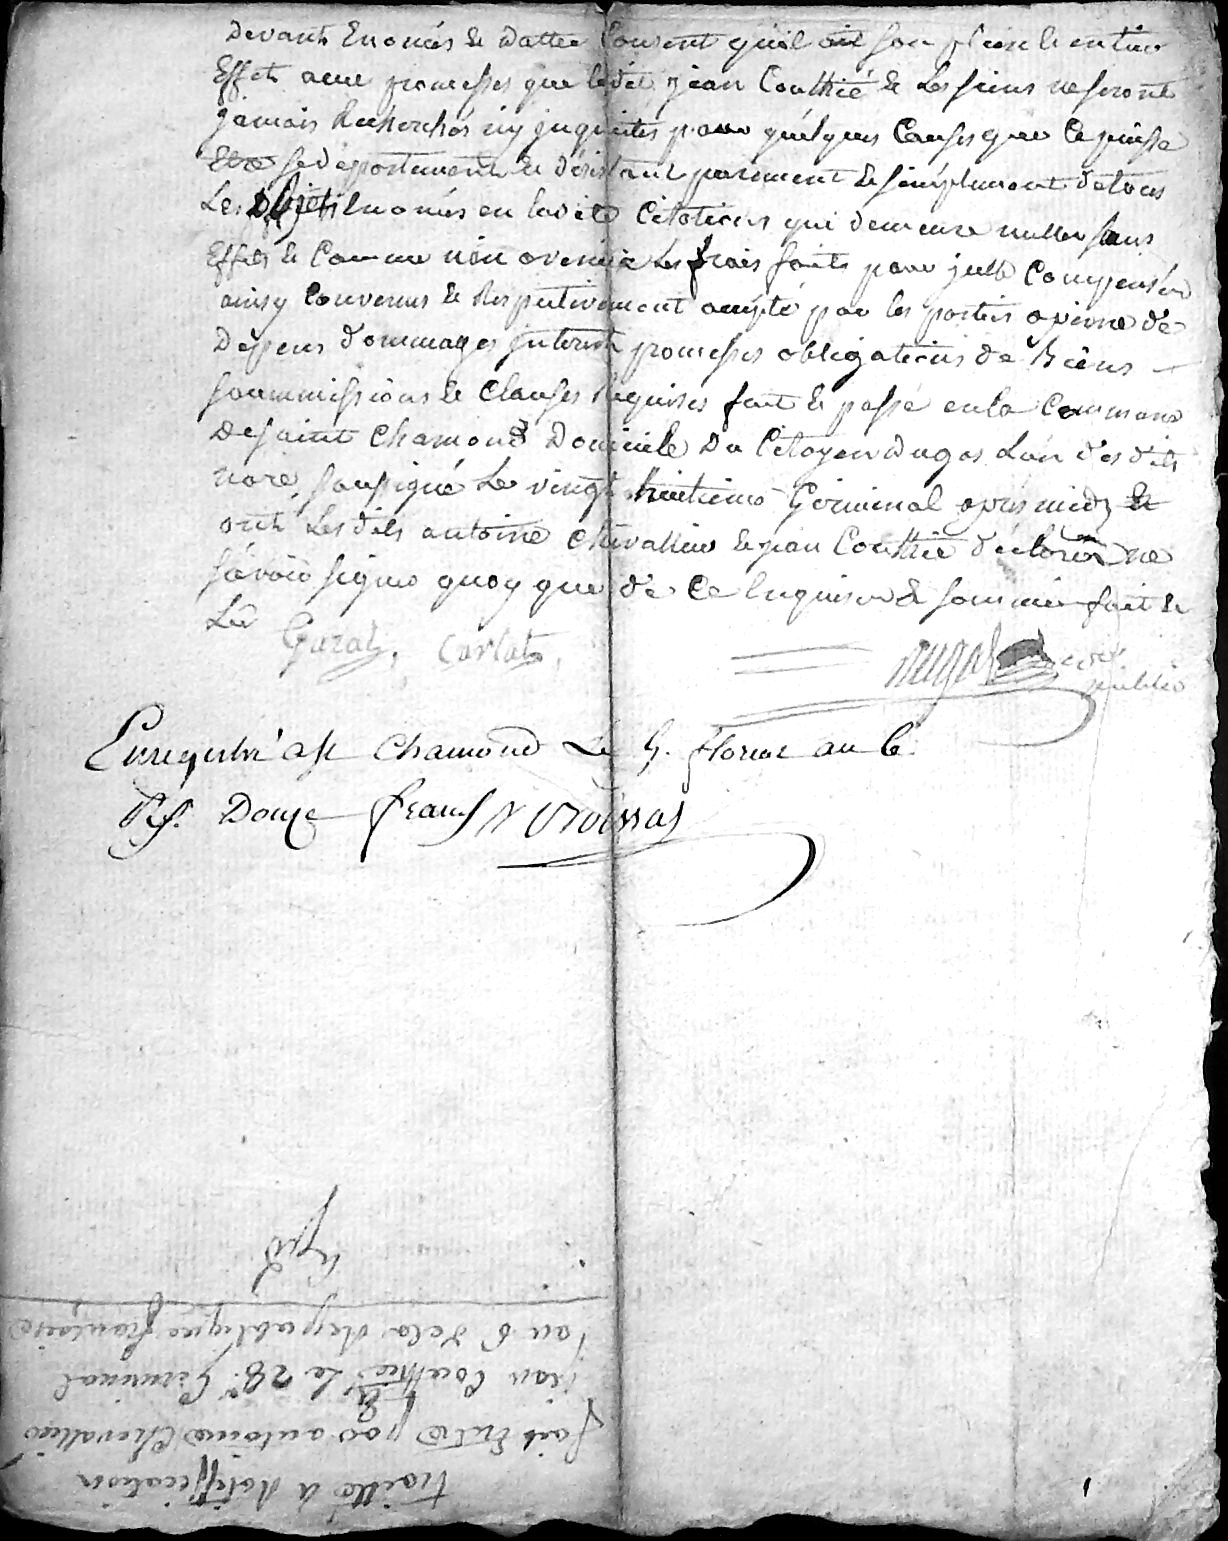 devant Enoncés & dattée Consent qu'il ait son plein & entier
Effet avec promesses que ledit jean Couttié & Les siens ne seront
jamais Recherchés ny inquietés pour quelques Causes que Ce puisse
Etre se departement & désistant purement & simplement de tous
Les objets Enoncés en ladite Citation qui demeure nulle sans
Effets & Comme non avenue Les frais faits pour jcelle Compensés
ainsy Convenus & Respectivement accepté par les parties a peine de
Depens dommages jnterets promesses obligations de Biens
soummissions & Clauses Requises fait & passé en la Commune
De saint Chamond Domicile du Citoyen dugas L'un des dits
nore soussigné Le vingt huitieme Germinal apres midy &
ont Lesdits antoine Chevallier & jean Couttié déclaré ne
sávoir signer quoy que de Ce Enquis & sommés fait &
Lû Garat, Carlat, dugas
public
Enregistré a St Chamond Le 9. floreal an 6.
R. Douze francs
Exped
traitté & Ratiffication
fait Entre par antoine Chevallier
& jean Couttié Le 28e Germinal
l'an 6 de la Republique française